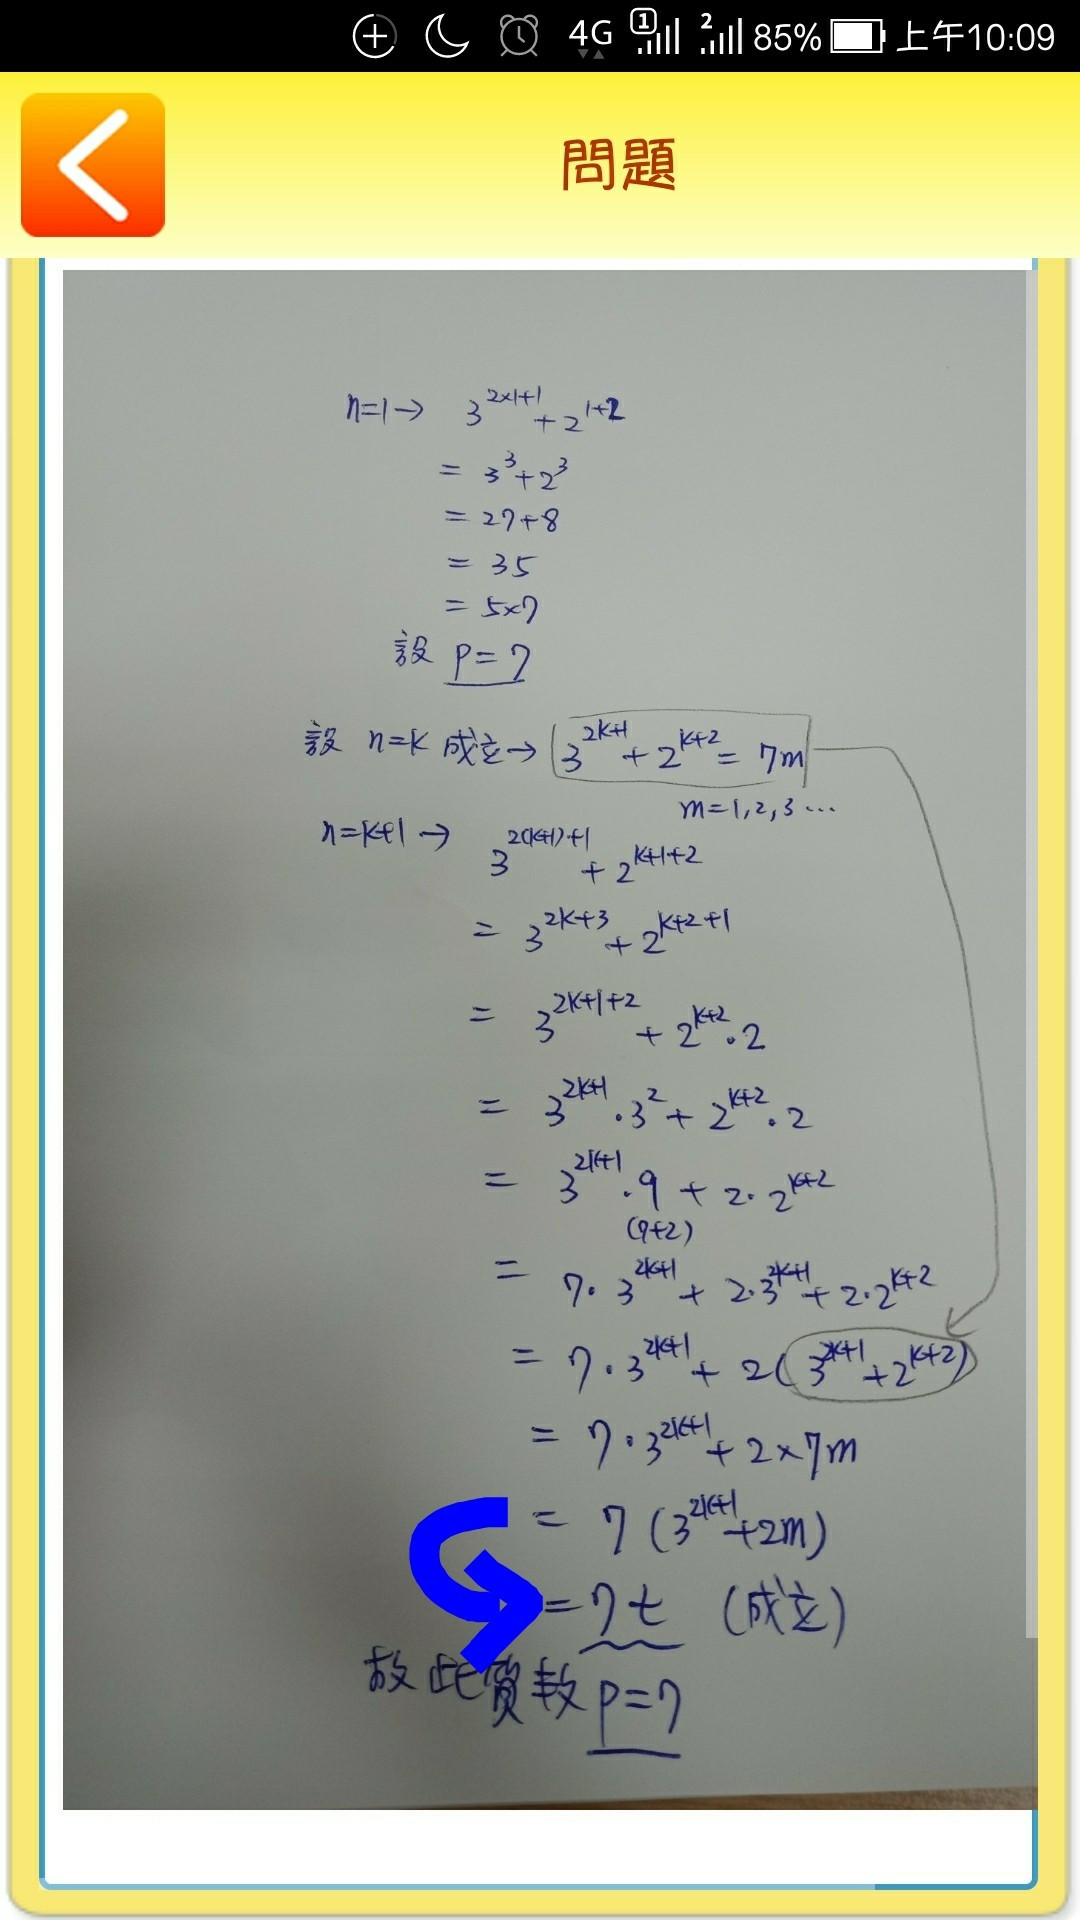 4G 1 2 85% 上午10:09
問題
n=1→ 3^{2×1+1}+2^{1+2}
= 3^3+2^3
= 27+8
= 35
= 5×7
設 P=7
設 n=k 成立→ 3^{2k+1}+2^{k+2}= 7m
m=1,2,3...
n=k+1→ 3^{2(k+1)+1}+2^{k+1+2}
= 3^{2k+3}+2^{k+2+1}
= 3^{2k+1+2}+2^{k+2}·2
= 3^{2k+1}·3^2+2^{k+2}·2
= 3^{2k+1}·9+2·2^{k+2}
(7+2)
= 7·3^{2k+1}+2·3^{2k+1}+2·2^{k+2}
= 7·3^{2k+1}+2(3^{2k+1}+2^{k+2})
= 7·3^{2k+1}+2×7m
= 7(3^{2k+1}+2m)
=7t (成立)
故此質數 P=7